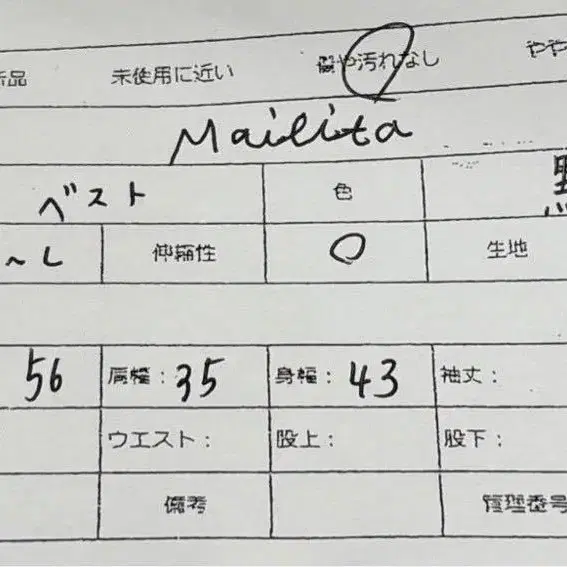 新品 未使用に近い 傷や汚れなし やや
Mailita
ベスト 色 黒
～L 伸縮性 ○ 生地
56 肩幅：35 身幅：43 袖丈：
ウエスト： 股上： 股下：
備考 管理番号